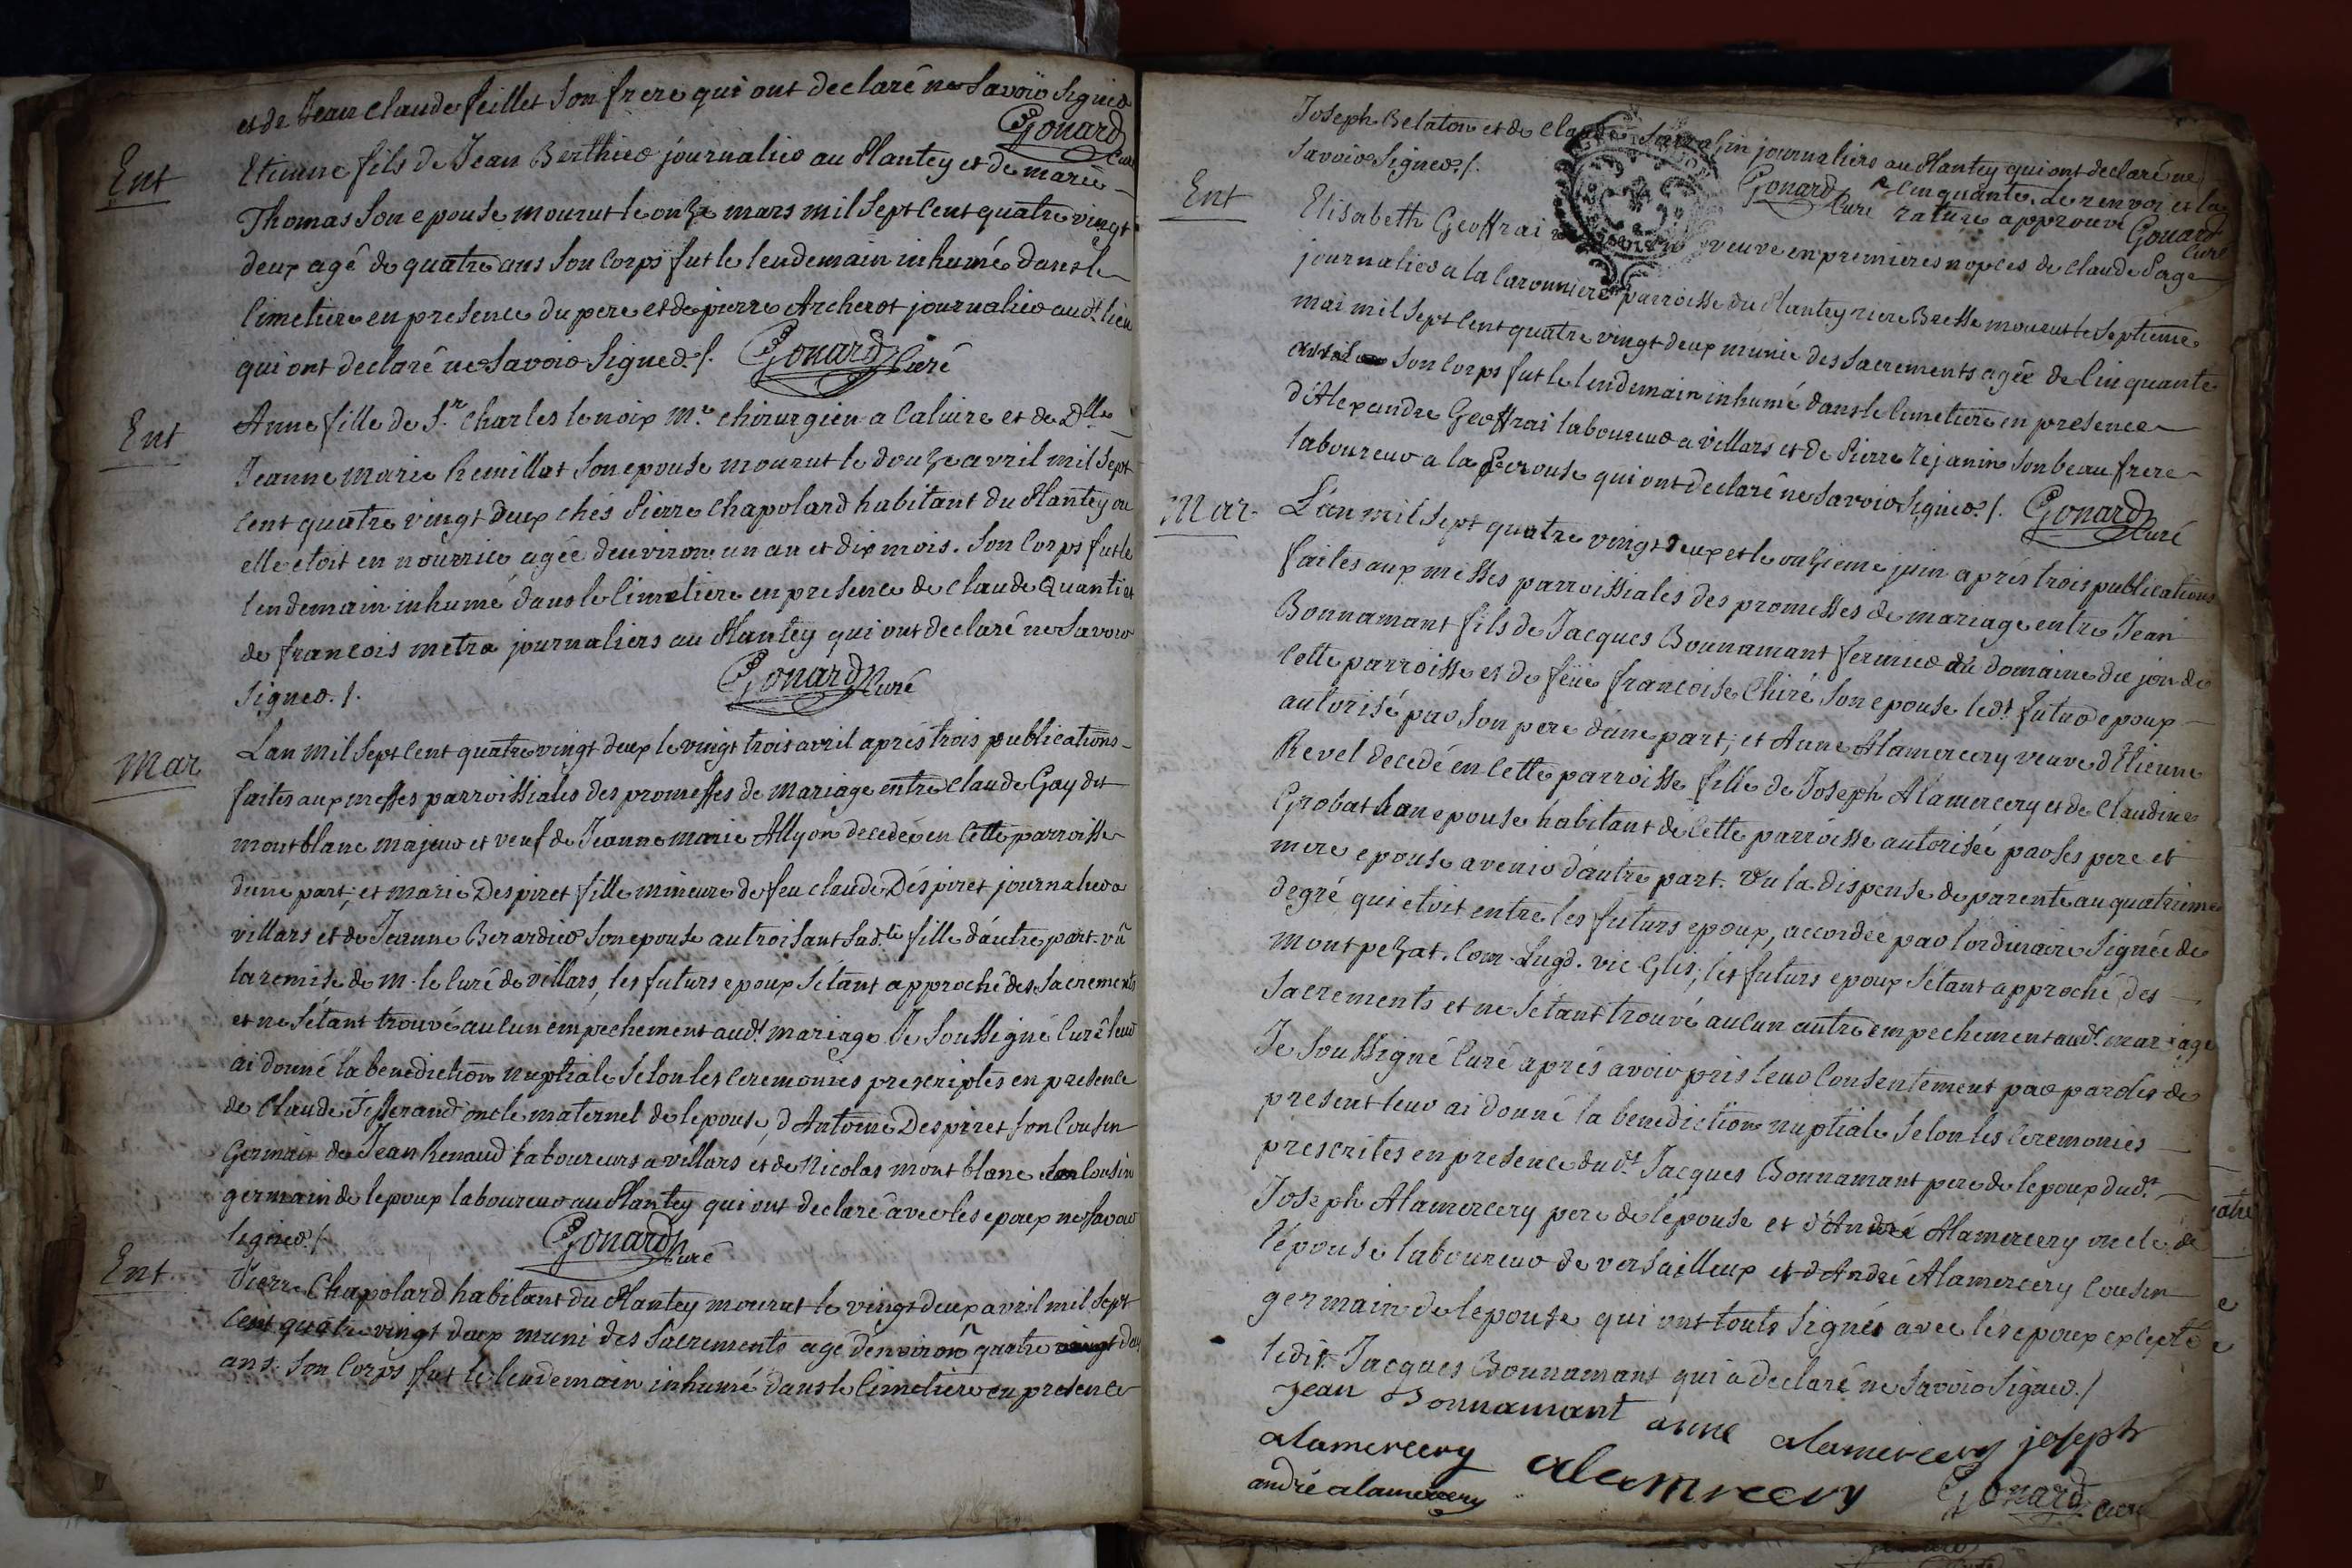 et de Jean Claude feillet son frere qui ont declaré ne savoir signer
Gonard Curé
Ent
Etienne fils de Jean Berthier journalier au Plantey et de marie
Thomas son epouse mourut le onze mars mil sept cent quatre vingt
deux agé de quatre ans son corps fut le lendemain inhumé dans le
cimetiere en presence du pere et de pierre Archerot journalier audt. lieu
qui ont declaré ne savoir signer./. Gonard Curé
Ent
Anne fille de Sr. Charles lenoix Me. chirurgien a Caluire et de Dlle
Jeanne marie Remillat son epouse mourut le douze avril mil sept
cent quatre vingt deux chés Pierre Chapolard habitant du Plantey ou
elle etoit en nourrice agée denviron un an et dix mois. son corps fut le
lendemain inhumé dans le cimetiere en presence de Claude Quanti et
de francois metra journaliers au Plantey qui ont declaré ne savoir
signer./. Gonard Curé
Mar
Lan mil sept cent quatre vingt deux le vingt trois avril aprés trois publications
faites aux messes parroissiales des promesses de mariage entre Claude Gay dit
montblanc majeur et veuf de Jeanne marie Allyon decedée en cette parroisse
dune part; et marie Despiret fille mineure de feu Claude Despiret journalier a
villars et de Jeanne Berardier son epouse autroisant sad.te fille dáutre part. vû
la remise de M. le Curé de villars, les futurs epoux sétant approché des sacrements
et ne sétant trouvé aucun empechement audt. mariage Je soussigné Curé leur
ai donné la benediction nuptiale selon les ceremonies prescriptes en presence
de Claude Tisserand oncle maternel de lepouse, d'Antoine Despiret son cousin
Germain de Jean Renaud laboureurs a villars et de Nicolas mont blanc son cousin
germain de lepoux laboureur au Plantey qui ont declaré avec les epoux ne savoir
signer./. Gonard Curé
Ent.
Pierre Chapolard habitant du Plantey mourut le vingt deux avril mil sept
cent quatre vingt deux muni des sacrements agé dénviron quatre vingt
ans. son corps fut le lendemain inhumé dans le cimetiere en presence
Joseph Belaton et de Claude journaliers au Plantey qui ont declaré ne
savoir signer./. Gonard Curé
cinquante, de renvoi et la
rature approuvé Gonard
Curé
Ent
Elisabeth Geoffrai veuve en premieres nopces de Claude Page
journalier a la Caronniere parroisse du Plantey riere Bresse mourut le septieme
mai mil sept cent quatre vingt deux munie des sacrements agée de cinquante
son corps fut le lendemain inhumé dans le cimetiere en presence
d'Alexandre Geoffrai laboureur a villars et de Pierre Rejanin son beau frere
laboureur a la Perouse qui ont declaré ne savoir signer./. Gonard Curé
Mar
L'an mil sept quatre vingt deux et le onzieme juin aprés trois publications
faites aux messes parroissiales des promesses de mariage entre Jean
Bonnamant fils de Jacques Bonnamant fermier du domaine du jon de
cette parroisse et de feüe francoise Chiré son epouse ledt. futur epoux
autorisé par son pere dune part; et Anne Alamercery veuve d'Etienne
Revel decedé en cette parroisse fille de Joseph Alamercery et de Claudine
Grobat son epouse habitant de cette parroisse autorisée par ses pere et
mere epouse avenir dáutre part. vu la dispense de parente au quatrieme
degré qui etoit entre les futurs epoux, accordée par lordinaire signée de
montpezat. Com. Lugd. vic. Glis; les futurs epoux sétant approché des
sacrements et ne sétant trouvé aucun autre empechement audt. mariage
Je soussigné Curé aprés avoir pris leur consentement par paroles de
present leur ai donné la benediction nuptiale selon les ceremonies
prescrites en presence dudt. Jacques Bonnamant pere de lepoux dudt.
Joseph Alamercery pere de lepouse et d'André Alamercery oncle de
l'epouse laboureur de versailleux et d'André Alamercery cousin
germain de lepouse qui ont touts signés avec les epoux excepté
ledit Jacques Bonnamant qui a declaré ne savoir signer./
jean Bonnamant anne alamercery joseph
alamercery alamrcery Gonard curé
andré alamercery